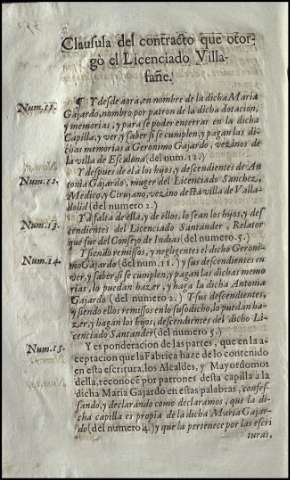 Clausula del contracto que otor-
gò el Licenciado Villa-
fañe.
Num. 11. ¶ Y desde aora, en nombre de la dicha Maria
Gajardo, nombro por patron de la dicha dotacion,
y memorias, y para se poder enterrar en la dicha
Capilla, y ver, y saber si se cumplen, y pagan las di-
chas memorias à Geronimo Gajardo, vezinos de
la villa de Escalona (del num. 12.)
Num. 12. Y despues de él à los hijos, y descendientes de An-
tonia Gajardo, muger del Licenciado Sanchez,
Medico, y Cirujano, vezino desta villa de Valla-
dolid (del numero 2.)
Num. 13. Y à falta de ella, y de ellos, lo sean los hijos, y des-
cendientes del Licenciado Santander, Relator
que fue del Consejo de Indias (del numero 5.)
Num. 14. Y siendo remissos, y negligentes el dicho Geroni-
mo Gajardo (del num. 12.) y sus descendientes en
ver, y saber si se cumplen, y pagan las dichas memo-
rias, lo puedan hazer, y haga la dicha Antonia
Gajardo (del numero 2.) Y sus descendientes,
y siendo ellos remissos en lo susodicho, lo puedan ha-
zer, y hagan los hijos, descendientes del dicho Li-
cenciado Santander (del numero 5.)
Num. 15. Y es ponderacion de las partes, que en la a-
ceptacion que la Fabrica haze de lo contenido
en esta escritura, los Alcaldes, y Mayordomos
della, reconocē por patrones desta capilla à la
dicha Maria Gajardo en estas palabras, confes-
sando, y declarando como declaramos, que la di-
cha capilla es propia de la dicha Maria Gajar-
do (del numero 4.) y que la pertenece por las escri
turas,